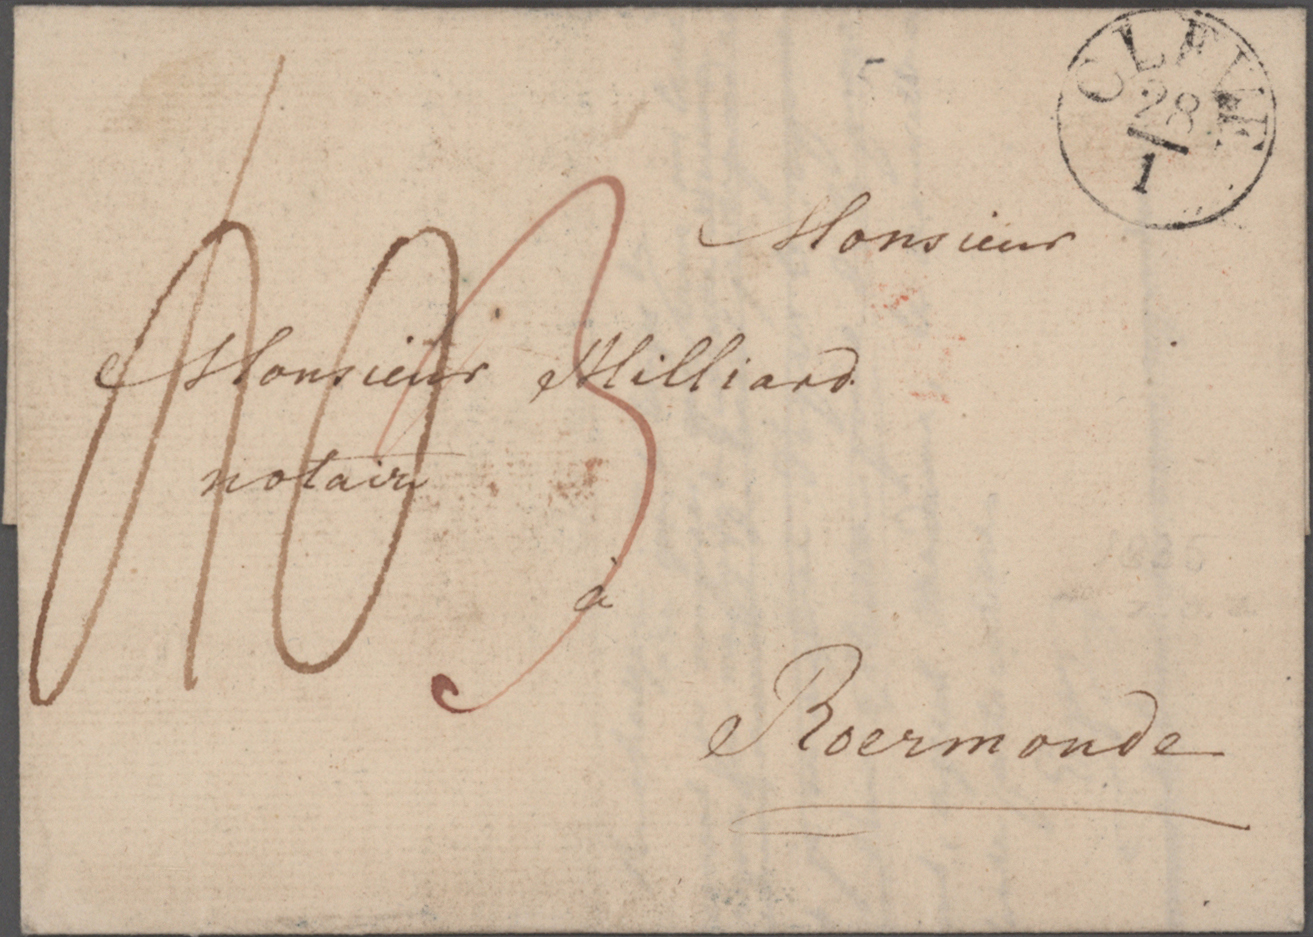 CLEVE
28
1
Monsieur
Monsieur Milliard
notaire
à
Roermonde
3